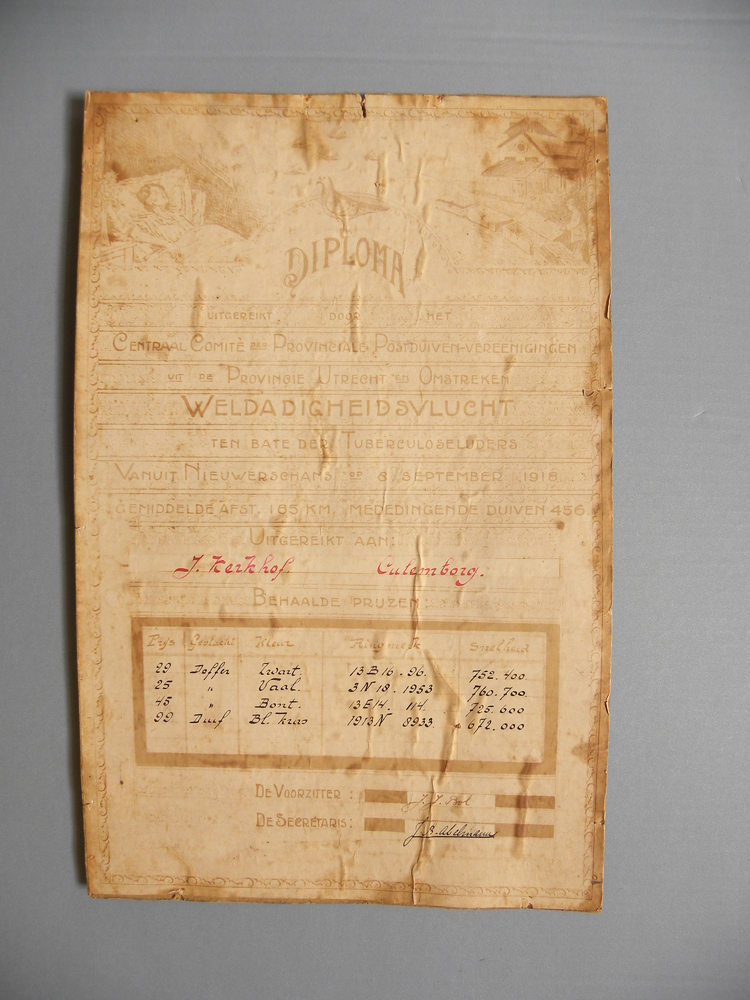 DIPLOMA
UITGEREIKT DOOR HET
CENTRAAL COMITÉ DER PROVINCIALE POSTDUIVEN-VEREENIGINGEN
UIT DE PROVINCIE UTRECHT EN OMSTREKEN
WELDADIGHEIDSVLUCHT
TEN BATE DER TUBERCULOSELIJDERS
VANUIT NIEUWERSCHANS OP 8 SEPTEMBER 1918
GEMIDDELDE AFST. 185 KM. MEDEDINGENDE DUIVEN 456
UITGEREIKT AAN:
J. Kerkhof Culemborg.
BEHAALDE PRIJZEN:
Prijs Geslacht Kleur Ringmerk Snelheid
29 Doffer Zwart. 13 B 16 . 96. 752.400.
25 " Vaal. 3 N 18 . 1953 760.700.
45 " Bont. 13 E 14 . 114. 725.600
99 Duif Bl. Kras 1913 N 8933. 672.000
DE VOORZITTER:
DE SECRETARIS: